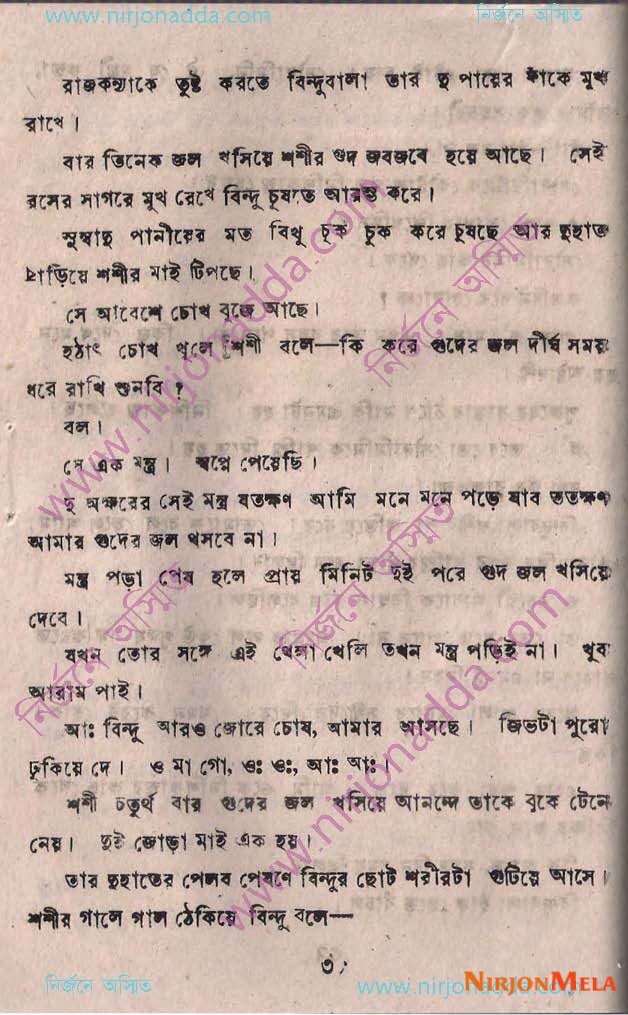 www.nirjonadda.com নির্জনে অস্মিত
রাজকন্যাকে তুষ্ট করতে বিন্দুবালা তার দু পায়ের ফাঁকে মুখ
রাখে।
বার তিনেক জল খসিয়ে শশীর গুদ জবজবে হয়ে আছে। সেই
রসের সাগরে মুখ রেখে বিন্দু চুষতে আরম্ভ করে।
সুস্বাদু পানীয়ের মত বিধু চুক চুক করে চুষছে আর দুহাত
বাড়িয়ে শশীর মাই টিপছে।
সে আবেশে চোখ বুজে আছে।
হঠাৎ চোখ খুলে শশী বলে—কি করে গুদের জল দীর্ঘ সময়
ধরে রাখি শুনবি ?
বল।
সে এক মন্ত্র। স্বপ্নে পেয়েছি।
দু অক্ষরের সেই মন্ত্র যতক্ষণ আমি মনে মনে পড়ে যাব ততক্ষণ
আমার গুদের জল খসবে না।
মন্ত্র পড়া শেষ হলে প্রায় মিনিট দুই পরে গুদ জল খসিয়ে
দেবে।
যখন তোর সঙ্গে এই খেলা খেলি তখন মন্ত্র পড়িই না। খুব
আরাম পাই।
আঃ বিন্দু আরও জোরে চোষ, আমার আসছে। জিভটা পুরো
ঢুকিয়ে দে। ও মা গো, ওঃ ওঃ, আঃ আঃ।
শশী চতুর্থ বার গুদের জল খসিয়ে আনন্দে তাকে বুকে টেনে
নেয়। দুই জোড়া মাই এক হয়।
তার দুহাতের পেলব পেষণে বিন্দুর ছোট শরীরটা গুটিয়ে আসে।
শশীর গালে গাল ঠেকিয়ে বিন্দু বলে—
নির্জনে অস্মিত www.nirjonadda.com
NIRJONMELA
www.nirjonadda.com
নির্জনে অস্মিত
নির্জনে অস্মিত
নির্জনে অস্মিত
www.nirjonadda.com